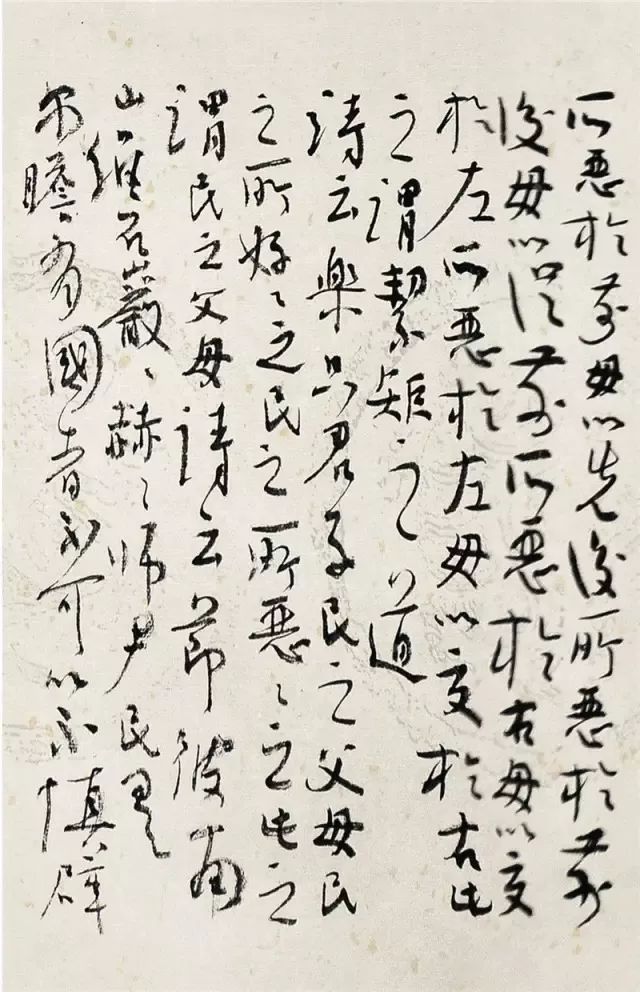 所惡於前毋以先後所惡於前
後毋以從前所惡於右毋以交
於左所惡於左毋以交於右此
之謂絜矩之道
詩云樂只君子民之父母民
之所好〻之民之所惡〻之此之
謂民之父母詩云節彼南
山維石巖〻赫〻師尹民具
尔瞻有國者不可以不慎辟